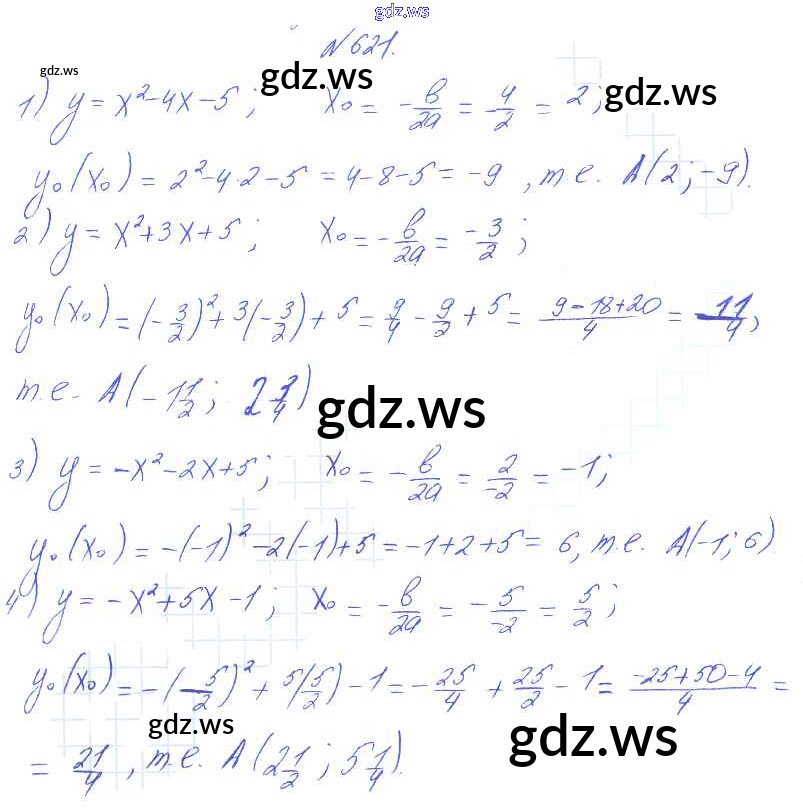 gdz.ws
№621.
gdz.ws
gdz.ws
gdz.ws
1) y = x²-4x-5; x₀ = -b/2a = 4/2 = 2;
y₀(x₀) = 2²-4·2-5 = 4-8-5 = -9, т.е. A(2; -9).
2) y = x²+3x+5; x₀ = -b/2a = -3/2;
y₀(x₀) = (-3/2)²+3(-3/2)+5 = 9/4 - 9/2 + 5 = (9-18+20)/4 = 11/4,
т.е. A(-1 1/2; 2 3/4)
gdz.ws
3) y = -x²-2x+5; x₀ = -b/2a = 2/-2 = -1;
y₀(x₀) = -(-1)²-2(-1)+5 = -1+2+5 = 6, т.е. A(-1; 6)
4) y = -x²+5x-1; x₀ = -b/2a = -5/-2 = 5/2;
y₀(x₀) = -(-5/2)² + 5(5/2) - 1 = -25/4 + 25/2 - 1 = (-25+50-4)/4 =
gdz.ws
gdz.ws
= 21/4, т.е. A(2 1/2; 5 1/4).